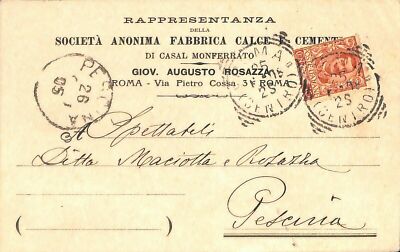 RAPPRESENTANZA
DELLA
SOCIETÀ ANONIMA FABBRICA CALCE E CEMENTI
DI CASAL MONFERRATO
GIOV. AUGUSTO ROSAZZA
ROMA - Via Pietro Cossa 3 - ROMA
ROMA
CENTRO
26
05
A Spettabili
Ditta Maciotta e Rosazza
Pescina